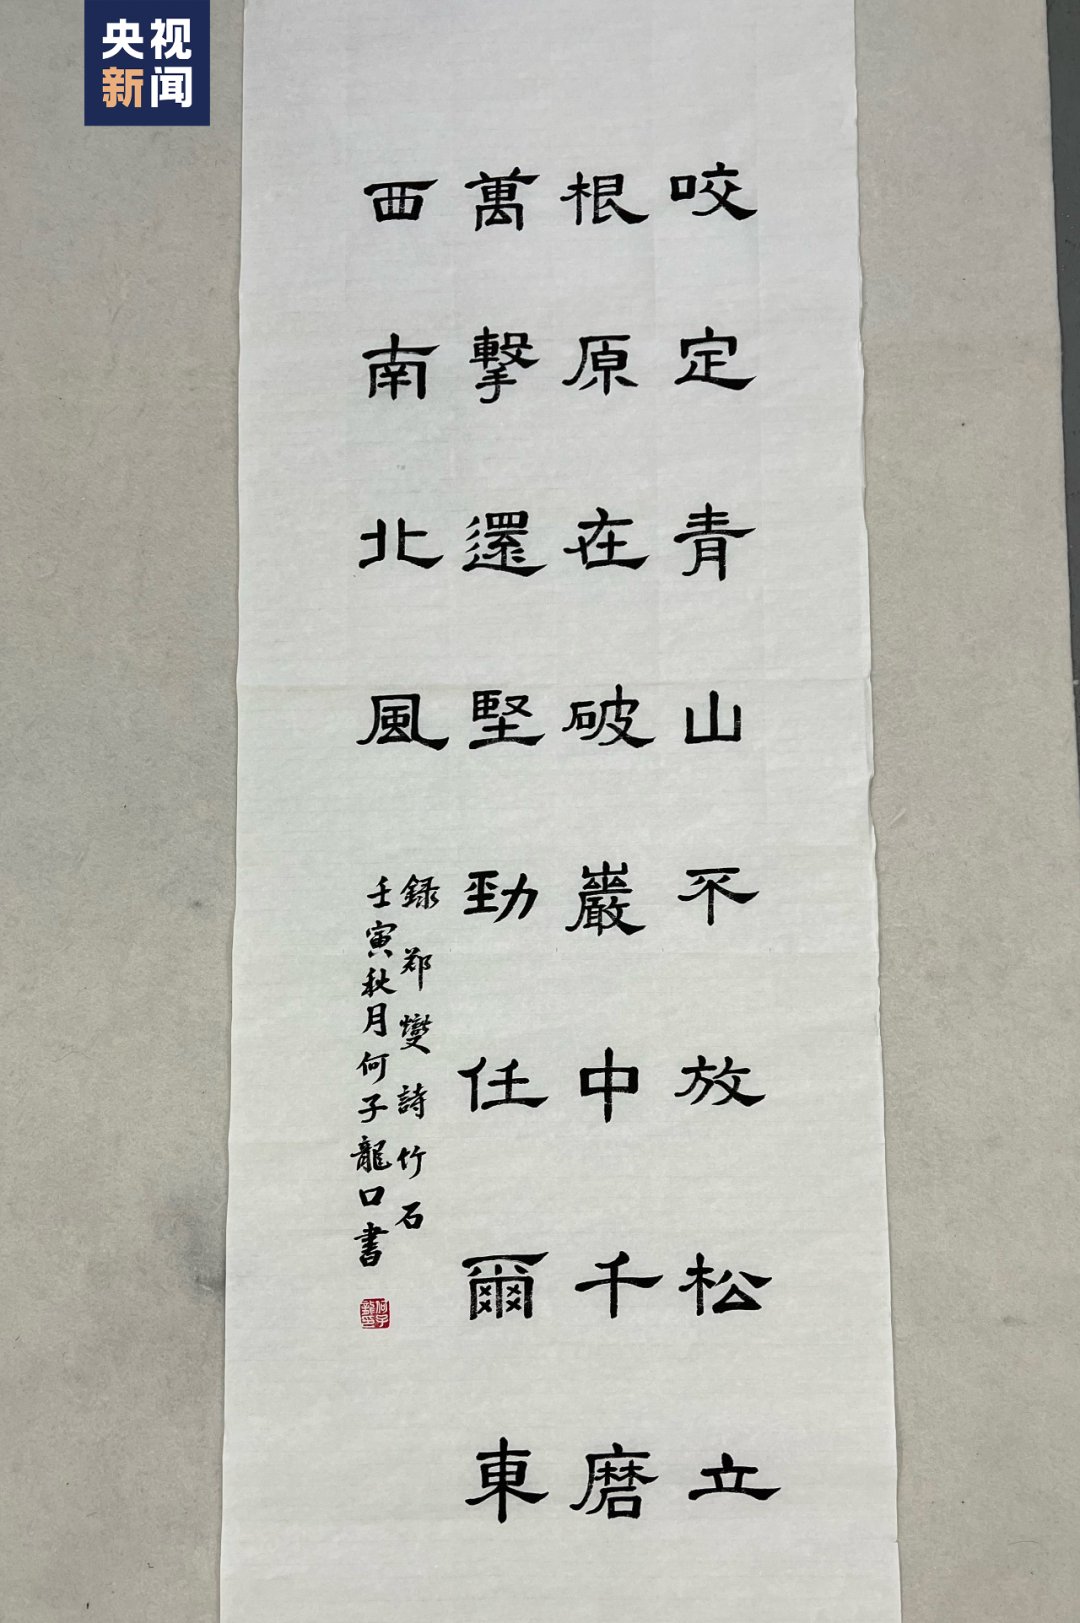 央视
新闻
咬定青山不放松立
根原在破巖中千磨
萬擊還堅勁任爾東
西南北風
録郑燮詩竹石
壬寅秋月何子龍口書
何子
龍印